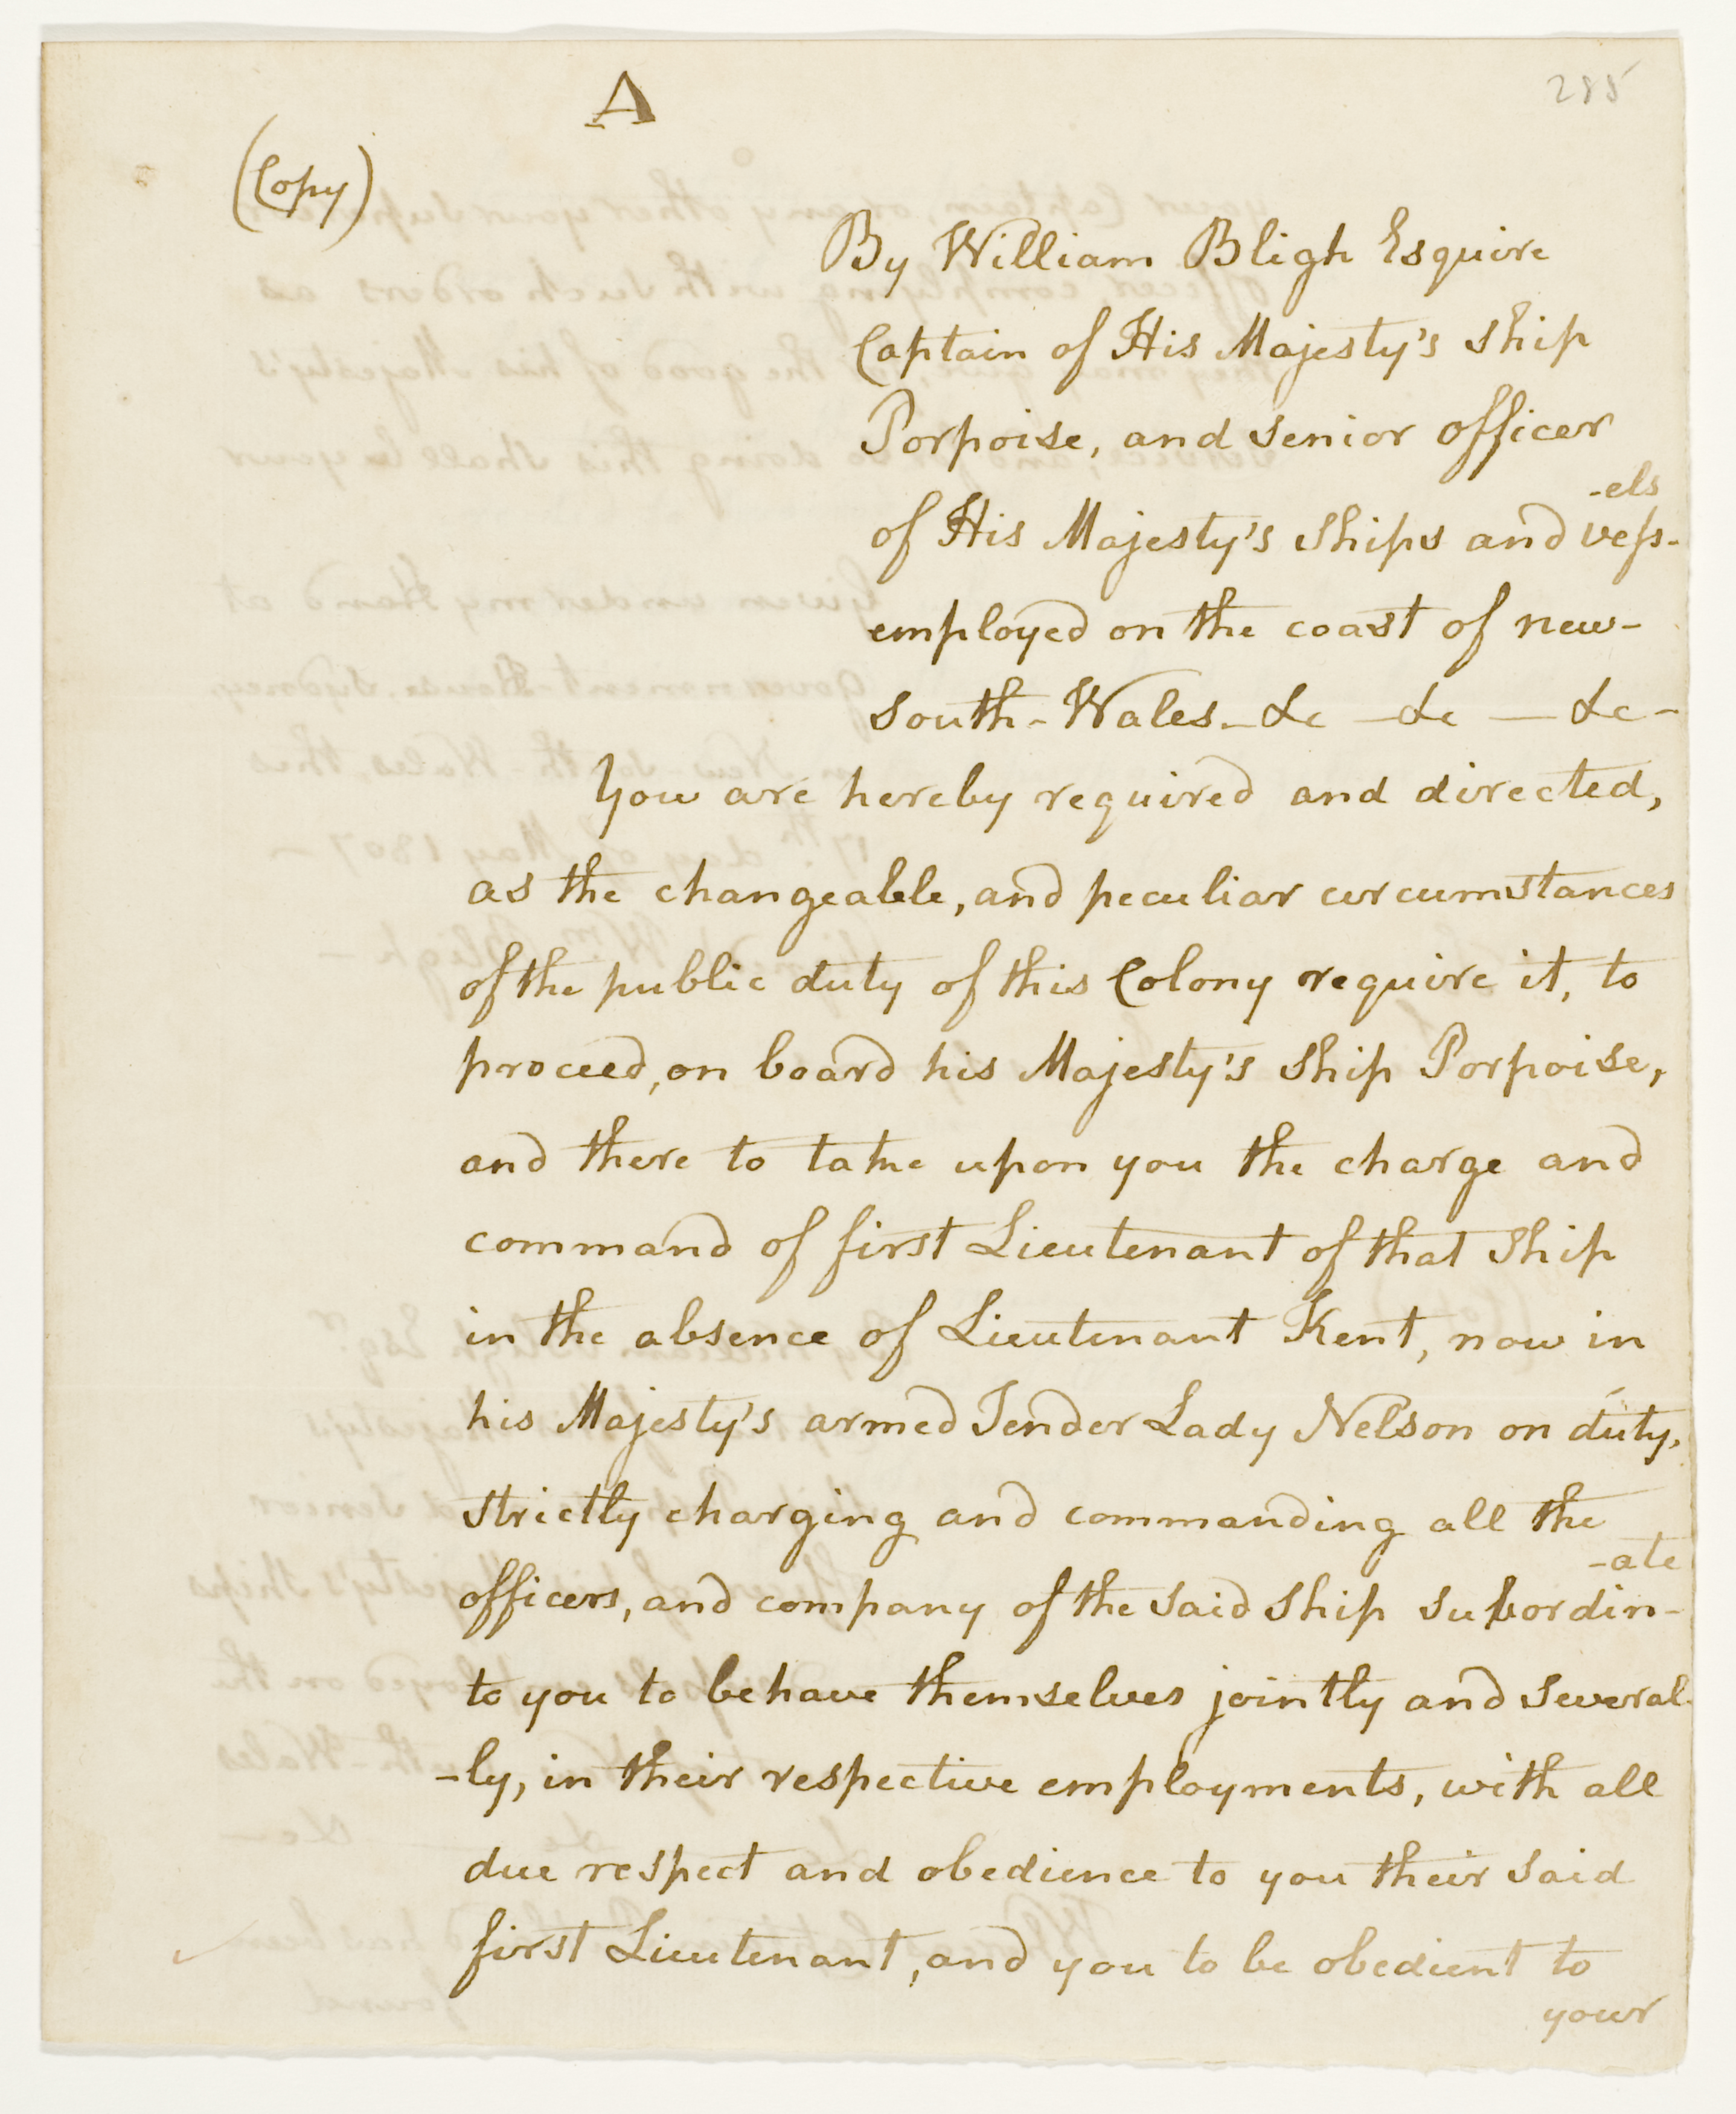 A
285
(Copy)
By William Bligh Esquire
Captain of His Majesty's Ship
Porpoise, and senior officer
of His Majesty's Ships and vess-
-els
employed on the coast of new-
south-Wales - &c - &c - &c -
You are hereby required and directed,
as the changeable, and peculiar circumstances
of the public duty of this Colony require it, to
proceed, on board his Majesty's Ship Porpoise,
and there to take upon you the charge and
command of first Lieutenant of that Ship
in the absence of Lieutenant Kent, now in
his Majesty's armed Tender Lady Nelson on duty,
strictly charging and commanding all the
officers, and company of the said Ship subordin-
-ate
to you to behave themselves jointly and several-
-ly, in their respective employments, with all
due respect and obedience to you their said
first Lieutenant, and you to be obedient to
your